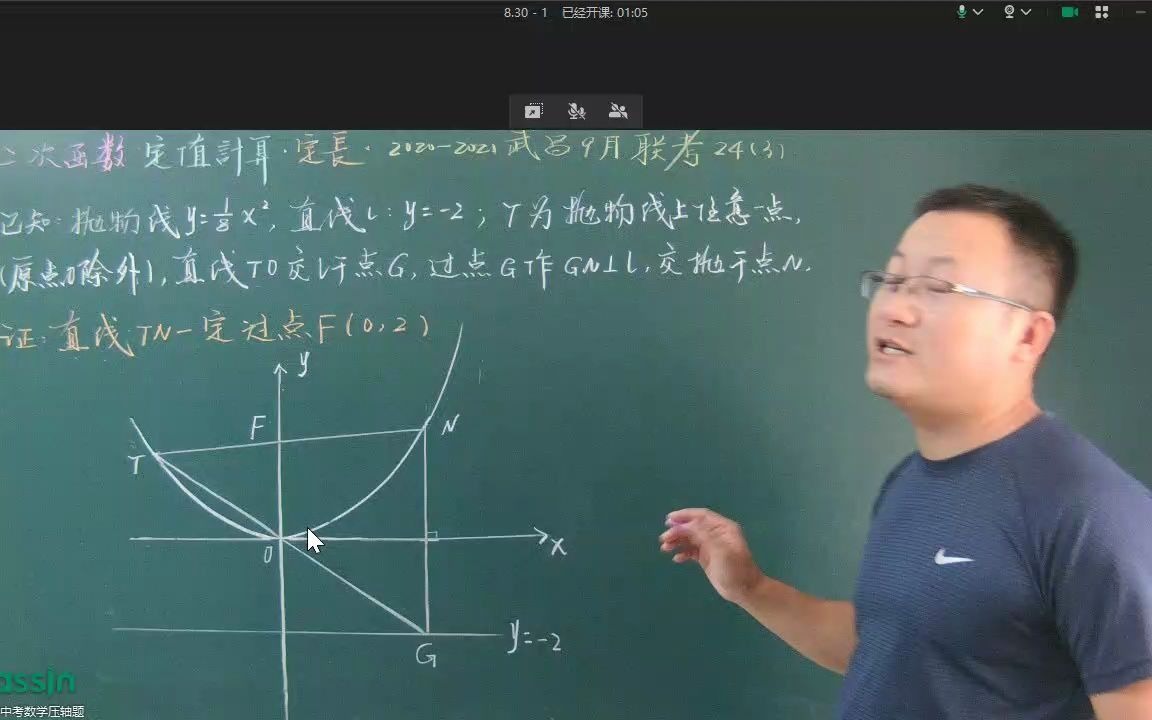 8.30 - 1 已经开课: 01:05
二次函数 定值計算·定長· 2020-2021武昌9月联考24(3)
已知: 抛物线y=1/8 x², 直线l: y=-2; T为抛物线上任意一点,
(原点O除外), 直线TO交l于点G, 过点G作GN⊥l, 交抛于点N.
证: 直线TN一定过点F(0,2)
y
F
N
T
O
x
y=-2
G
assin
中考数学压轴题